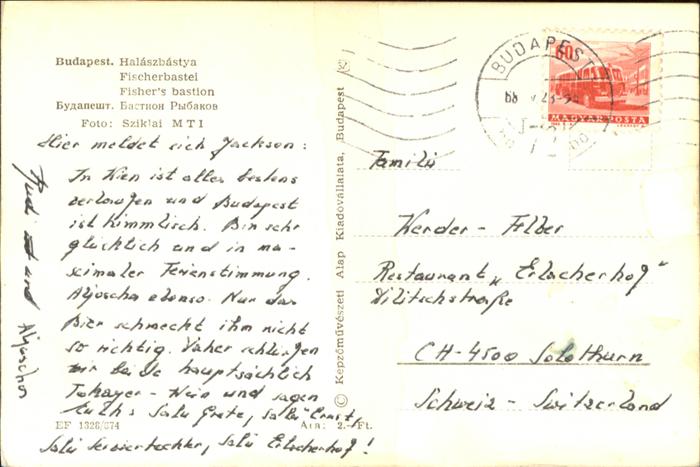 Budapest. Halászbástya
Fischerbastei
Fisher's bastion
Будапешт. Бастион Рыбаков
Foto: Sziklai MTI
Hier meldet sich Jackson:
In Wien ist alles bestens
verlaufen und Budapest
ist himmlisch. Bin sehr
glücklich und in ma-
ximaler Ferienstimmung.
Aljoscha ebenso. Nur das
Bier schmeckt ihm nicht
so richtig. Daher schlürfen
wir beide hauptsächlich
Tokayer-Wein und sagen
Euch: Salü Grete, Salü Ernst,
Salü Serviertochter, Salü Erlacherhof!
und Aljoscha
EF 1328/674
Ára: 2.-Ft.
© Képzőművészeti Alap Kiadóvállalata, Budapest
BUDAPEST
60
MAGYAR POSTA
Familie
Herder - Felber
Restaurant „Erlacherhof"
Dilitschstraße
CH-4500 Solothurn
Schweiz - Switzerland